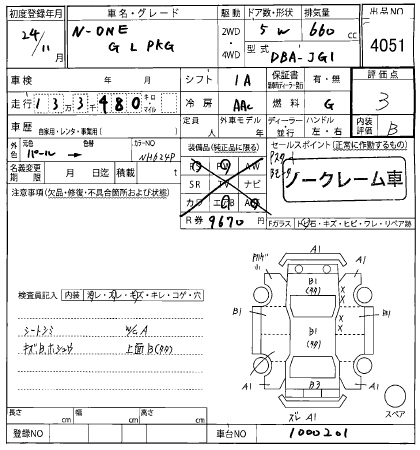 初度登録年月 車名・グレード 駆動 ドア数・形状 排気量 出品NO
24/11 N-ONE 2WD 5W 660cc 4051
G L PKG ・4WD 型式 DBA-JG1
車検 年 月 シフト IA 保証書 有・無 評価点
走行 13万3千480 キロ・マイル 冷房 AAC 燃料 G 3
車歴 自家用・レンタ・事業用( ) 定員 人 外車モデル 年 ディーラー・並行 ハンドル 左・右 内装評価 B
外色 元色 パール 色替 カラーNO NH624P 装備品(純正品に限る) セールスポイント(正常に作動するもの)
名義変更期限 月 日迄 積載 t PS PW AW
SR TV ナビ
カワ エアB
ノークレーム車
注意事項(欠品・修復・不具合箇所および状態) R券 9670円 Fガラス トビ石・キズ・ヒビ・ワレ・リペア跡
検査員記入 内装 汚レ・スレ・キズ・キレ・コゲ・穴
シートシミ
キズB
上面B
A1
A1
B1
A1
B1
B1
B1
B3
A1
A1
ズレ A1
スペア
長さ cm 幅 cm 高さ cm
登録NO 車台NO 1000201